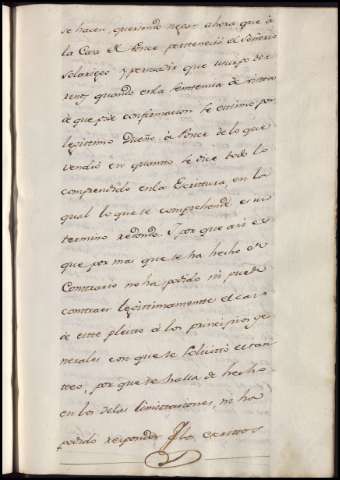 se hacen, queriendo negar ahora que à
la Casa de Ponce perteneció el Señorio
Solariego, y persuadir que
quando en la sentencia de vista
de que pide confirmacion se estimo por
legitimo Dueño, à Ponce de lo que
vendió en quanto se dice todo lo
comprendido en la Escritura, en la
qual lo que se comprehende es un
termino redondo. Y por que asi es
que por mas que se ha hecho de
Contrario no ha podido ni puede
contraer legitimamente el caso
de este pleito à los principios ge
nerales con que se solicitó el tan
teo, por que se halla de hecho
en los de las limitaciones, no ha
podido responder